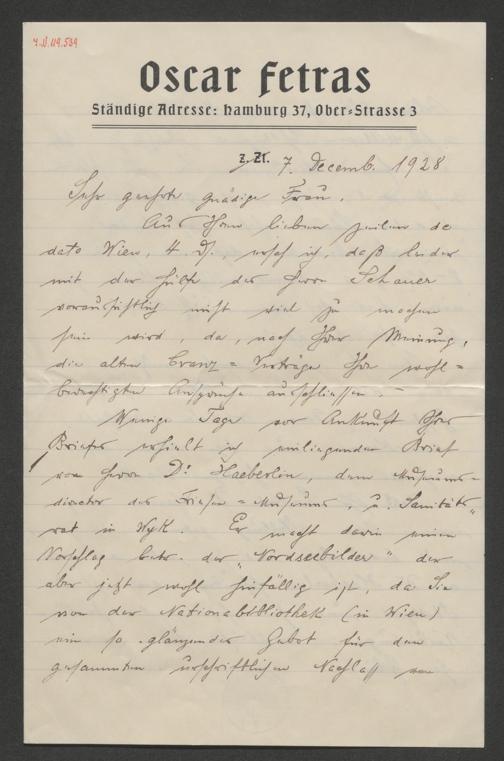 J.N.119.539
Oscar Fetras
Ständige Adresse: Hamburg 37, Ober-Strasse 3
z. Zt. 7. Decemb. 1928
Sehr geehrte gnädige Frau.
Aus Ihren lieben Zeilen de
dato Wien, 4. d. ersah ich, daß leider
mit der Hülfe des Herrn Schauer
voraussichtlich nicht viel zu machen
sein wird, da, nach Ihrer Meinung,
die alten Cranz=Verträge Ihre wohl=
berechtigten Ansprüche ausschliessen. –
Wenige Tage vor Ankunft Ihres
Briefes erhielt ich einliegenden Brief
von Herrn Dr. Haeberlin, dem Museums=
director des Friesen=Museums, u. Sanitäts=
rat in Wyk. Er macht darin einen
Vorschlag betr. der „Nordseebilder“ der
aber jetzt wohl hinfällig ist, da Sie
von der Nationalbibliothek (in Wien)
ein so glänzendes Gebot für den
gesammten urschriftlichen Nachlaß von